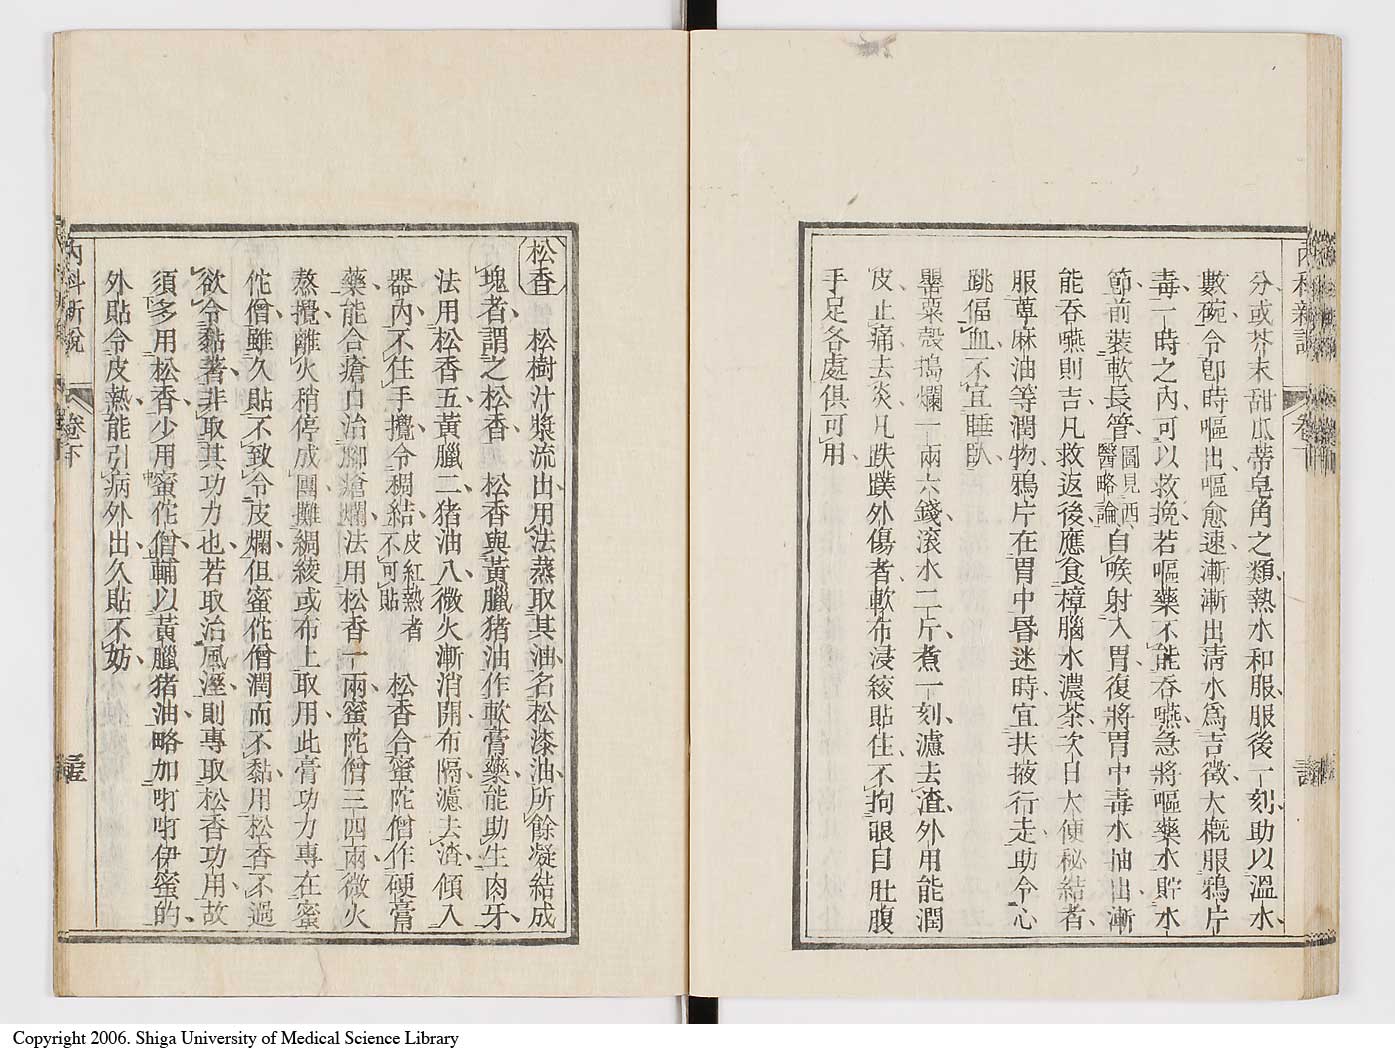 分或芥末甜瓜蒂皂角之類熱水和服服後一刻助以溫水
數碗令卽時嘔出嘔愈速漸漸出淸水爲吉徵大槪服鴉片
毒一時之內可以救挽若嘔藥不能吞嚥急將嘔藥水貯水
節前裝軟長管圖見西醫略論自喉射入胃復將胃中毒水抽出漸
能吞嚥則吉凡救返後應食樟腦水濃茶次日大便秘結者
服萆麻油等潤物鴉片在胃中昏迷時宜扶掖行走助令心
跳偪血不宜睡臥
罌粟殼搗爛一兩六錢滾水二斤煮一刻濾去渣外用能潤
皮止痛去炎凡跌蹼外傷者軟布浸絞貼住不拘眼目肚腹
手足各處俱可用
內科新說 卷下
松香 松樹汁漿流出用法蒸取其油名松漆油所餘凝結成
塊者謂之松香 松香與黃臘猪油作軟膏藥能助生肉牙
法用松香五黃臘二猪油八微火漸消開布隔濾去渣傾入
器內不住手攪令稠結皮紅熱者不可貼 松香合蜜陀僧作硬膏
藥能合瘡口治腳瘡爛法用松香一兩蜜陀僧三四兩微火
熬攪離火稍停成團攤綢綾或布上取用此膏功力專在蜜
佗僧雖久貼不致令皮爛但蜜佗僧潤而不黏用松香不過
欲令黏著非取其功力也若取治風溼則專取松香功用故
須多用松香少用蜜佗僧輔以黃臘猪油略加㖠㖠伊蜜的
外貼令皮熱能引病外出久貼不妨
內科新說 卷下
Copyright 2006. Shiga University of Medical Science Library